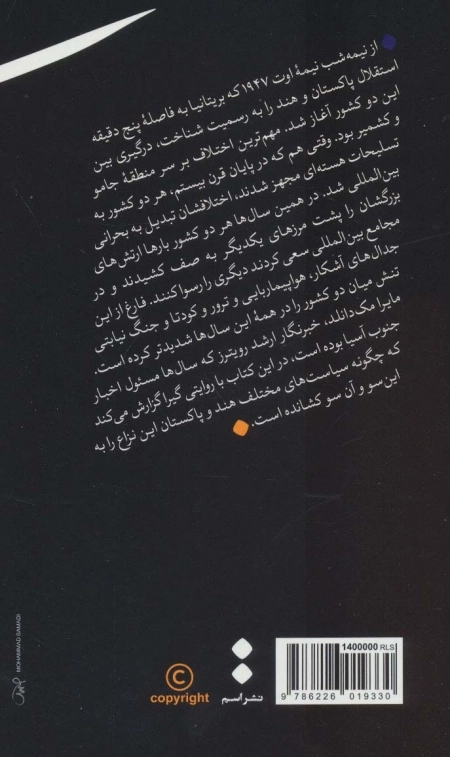 از نیمه‌شب نیمهٔ اوت ۱۹۴۷ که بریتانیا به فاصلهٔ پنج دقیقه
استقلال پاکستان و هند را به رسمیت شناخت، درگیری بین
این دو کشور آغاز شد. مهم‌ترین اختلاف بر سر منطقهٔ جامو
و کشمیر بود. وقتی هم که در پایان قرن بیستم، هر دو کشور به
تسلیحات هسته‌ای مجهز شدند، اختلافشان تبدیل به بحرانی
بین‌المللی شد. در همین سال‌ها هر دو کشور بارها ارتش‌های
بزرگشان را پشت مرزهای یکدیگر به صف کشیدند و در
مجامع بین‌المللی سعی کردند دیگری را رسوا کنند. فارغ از این
جدال‌های آشکار، هواپیماربایی و ترور و کودتا و جنگ نیابتی
تنش میان دو کشور را در همهٔ این سال‌ها شدیدتر کرده است.
مایرا مک‌دانلد، خبرنگار ارشد رویترز که سال‌ها مسئول اخبار
جنوب آسیا بوده است، در این کتاب با روایتی گیرا گزارش می‌کند
که چگونه سیاست‌های مختلف هند و پاکستان این نزاع را به
این سو و آن سو کشانده است.
MOHAMMAD SAMADI
copyright
نشر اسم
1400000 RLS
9 786226 019330